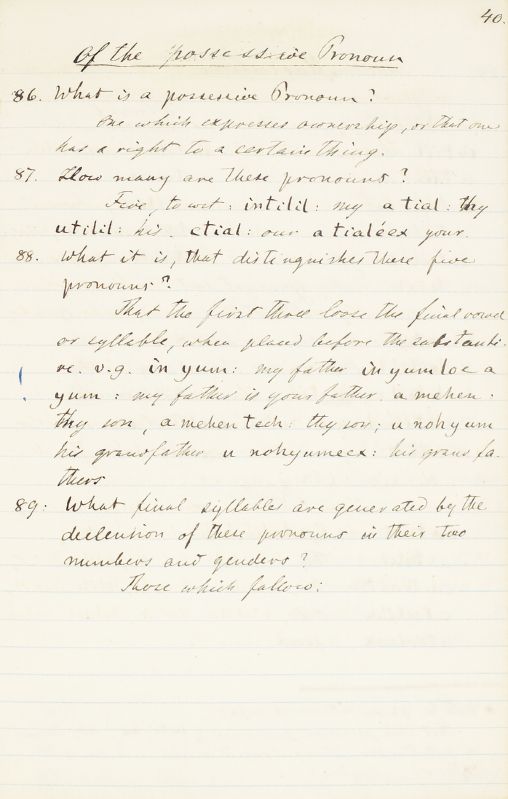 40.
Of the possessive Pronoun
86. What is a possessive Pronoun?
One which expresses ownership, or that one
has a right to a certain thing.
87. How many are these pronouns?
Five, to wit: intilil: my a tial: thy
utilil: his. ctial: our a tialéex your.
88. What it is, that distinguishes these five
pronouns?
That the first three loose the final vowel
or syllable, when placed before the substanti-
ve. v.g. in yum: my father in yum loe a
yum: my father is your father. a mehen:
thy son, a mehen tech: thy son; u nohyum
his grandfather u nohyumeex: his grand fa-
thers
89: What final syllables are generated by the
declension of these pronouns in their two
numbers and genders?
Those which follow: